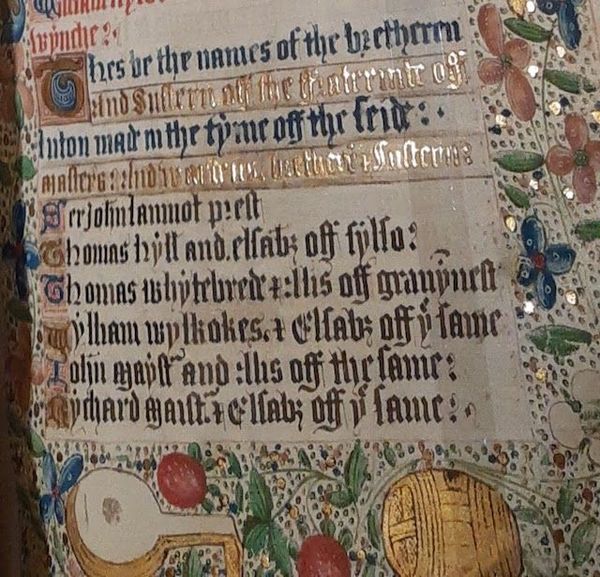 wynche :
Thes be the names of the bretheren
And Sustern off the fraternite off
luton mad in the tyme off the seid :
masters : And wardens, brethern & Susterns :
Ser john lammot prest
Thomas hyll and elsabz off sylso :
Thomas whytebrede & Alis off gravynest
Wylliam wylkokes & Elsabz off yͤ same
John mayster and Alis off the same :
Rychard maister & Elsabz off yͤ same :